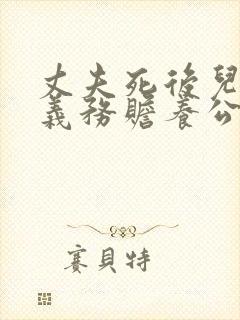 丈夫死後兒
義務贍養公
賽貝特